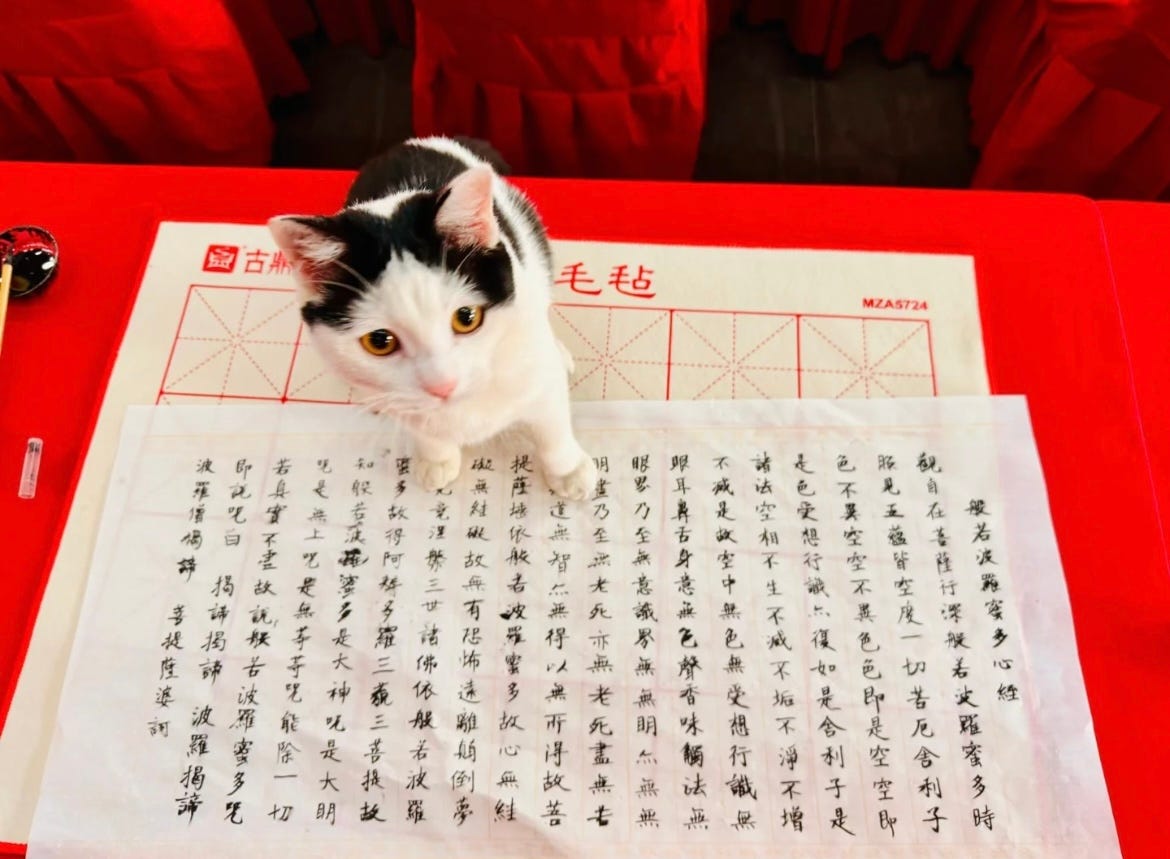 古鼎
毛毡
MZA5724
般若波羅蜜多心經
觀自在菩薩行深般若波羅蜜多時
照見五蘊皆空度一切苦厄舍利子
色不異空空不異色色即是空空即
是色受想行識亦復如是舍利子是
諸法空相不生不滅不垢不淨不增
不減是故空中無色無受想行識無
眼耳鼻舌身意無色聲香味觸法無
眼界乃至無意識界無無明亦無無
明盡乃至無老死亦無老死盡無苦
道無智亦無得以無所得故菩
提薩埵依般若波羅蜜多故心無絓
礙無絓礙故無有恐怖遠離顛倒夢
竟涅槃三世諸佛依般若波羅
蜜多故得阿耨多羅三藐三菩提故
知般若波羅蜜多是大神咒是大明
咒是無上咒是無等等咒能除一切
若真實不虛故說般若波羅蜜多咒
即說咒曰 揭諦揭諦 波羅揭諦
波羅僧揭諦 菩提薩婆訶